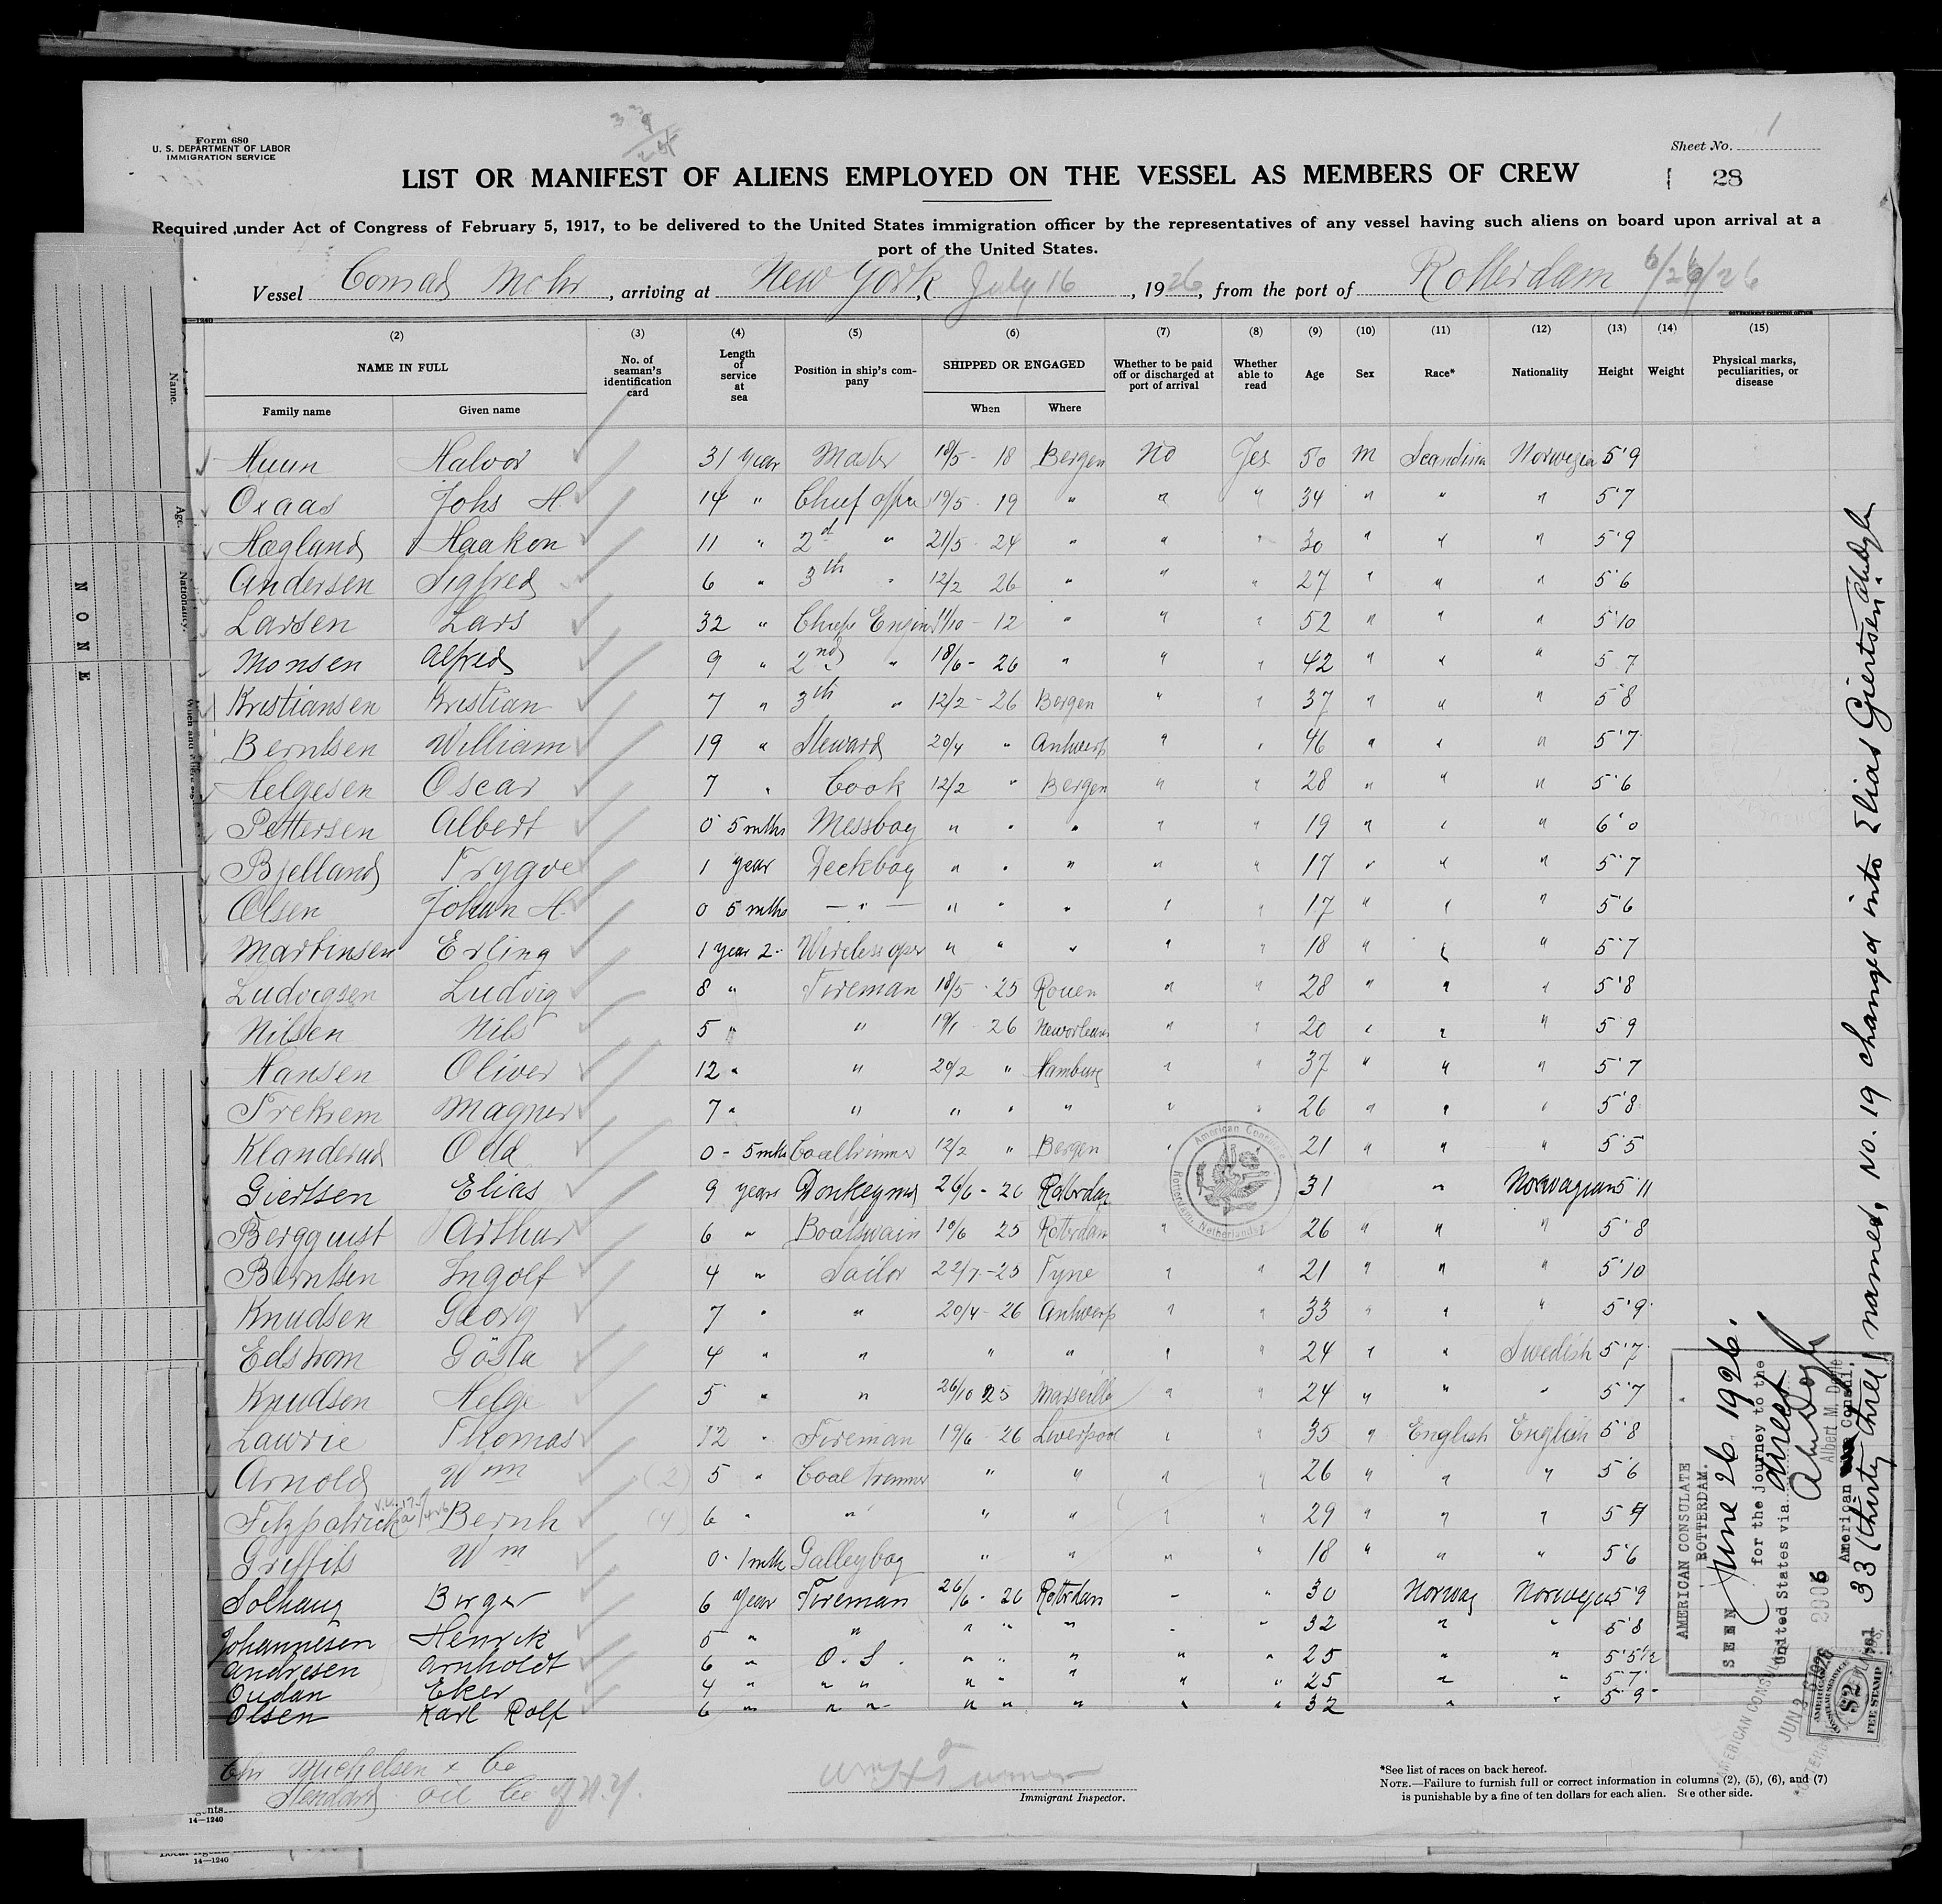 Form 680
U. S. DEPARTMENT OF LABOR
IMMIGRATION SERVICE
Sheet No. 1
28
LIST OR MANIFEST OF ALIENS EMPLOYED ON THE VESSEL AS MEMBERS OF CREW
Required under Act of Congress of February 5, 1917, to be delivered to the United States immigration officer by the representatives of any vessel having such aliens on board upon arrival at a
port of the United States.
Vessel Conrad Mohr, arriving at New York, July 16, 1926, from the port of Rotterdam 6/26/26
(2) (3) (4) (5) (6) (7) (8) (9) (10) (11) (12) (13) (14) (15)
NAME IN FULL
Family name Given name
No. of seaman's identification card
Length of service at sea
Position in ship's company
SHIPPED OR ENGAGED
When Where
Whether to be paid off or discharged at port of arrival
Whether able to read
Age Sex Race* Nationality Height Weight
Physical marks, peculiarities, or disease
Huun Halvor 31 year Master 18/5 - 18 Bergen No Yes 50 M Scandina Norwegian 5'9
Oxaas Johs H. 14 " Chief offr 19/5 - 19 " " " 34 " " " 5'7
Hegland Haakon 11 " 2d " 21/5 - 24 " " " 30 " " " 5'9
Andersen Sigfred 6 " 3th " 12/2 26 " " " 27 " " " 5'6
Larsen Lars 32 " Chief Engin 11/10 - 12 " " " 52 " " " 5'10
Monsen Alfred 9 " 2nd " 18/6 - 26 " " " 42 " " " 5 7
Kristiansen Kristian 7 " 3th " 12/2 - 26 Bergen " " 37 " " " 5'8
Berntsen William 19 " Steward 20/4 " Antwerp " " 46 " " " 5'7
Helgesen Oscar 7 " Cook 12/2 " Bergen " " 28 " " " 5'6
Pettersen Albert 0 5 mths Messboy " " " " " 19 " " " 6'0
Bjelland Trygve 1 year Deckboy " " " " " 17 " " " 5'7
Olsen Johan H. 0 5 mths — " — " " " " " 17 " " " 5'6
Martinsen Erling 1 year 2 " Wireless oper " " " " " 18 " " " 5'7
Ludvigsen Ludvig 8 " Fireman 18/5 - 25 Rouen " " 28 " " " 5'8
Nilsen Nils 5 " " 19/1 26 Neworleans " " 20 " " " 5'9
Hansen Oliver 12 " " 20/2 " Hamburg " " 37 " " " 5'7
Trekrem Magner 7 " " " " " " " 26 " " " 5'8
Klanderud Odd 0 - 5 mths Coaltrimmer 12/2 " Bergen " 21 " " " 5'5
Giertsen Elias 9 years Donkeyman 26/6 - 26 Rotterdam 31 " Norwegian 5'11
Bergquist Arthur 6 " Boatswain 10/6 25 Rotterdam " 26 " " " 5'8
Berntsen Ingolf 4 " Sailor 22/7 - 25 Tyne " " 21 " " " 5'10
Knudsen Georg 7 " " 20/4 - 26 Antwerp " " 33 " " " 5'9
Edstrom Gösta 4 " " " " " " 24 " " Swedish 5'7
Knudsen Helge 5 " " 26/10 25 Marseille " " 24 " " " 5'7
Lawrie Thomas 12 " Fireman 19/6 - 26 Liverpool " " 35 " English English 5'8
Arnold Wm (2) 5 " Coal trimmer " " " " 26 " " " 5'6
Fitzpatrick Bernh (4) 6 " " " " " " 29 " " " 5 4
Griffits Wm 0 - 1 mth Galleyboy " " " " 18 " " " 5'6
Solhaug Birger 6 year Fireman 26/6 - 26 Rotterdam " " 30 Norway Norwegian 5'9
Johannesen Henrik 5 " " " " " " " 32 " " 5'8
Andresen Arnholdt 6 " O. S. " " " " " 25 " " 5'5 1/2
Oudan Eker 4 " " " " " " " " 25 " " 5'7
Olsen Karl Rolf 6 " " " " " " " " 32 " " 5'9
Chr Michelsen & Co
Standard oil Co of N.Y.
Immigrant Inspector.
*See list of races on back hereof.
NOTE.—Failure to furnish full or correct information in columns (2), (5), (6), and (7)
is punishable by a fine of ten dollars for each alien. See other side.
14—1240
14—1240
Name.
Age.
Nationality.
NONE
American Consulate
Rotterdam, Netherlands
33 (thirty three) names, No. 19 changed into Elias Giertsen
AMERICAN CONSULATE
ROTTERDAM.
SEEN June 26 1926.
for the journey to the
United States via direct
Albert M. Doyle
American Consul,
AMERICAN CONSULAR SERVICE
$2
FEE STAMP